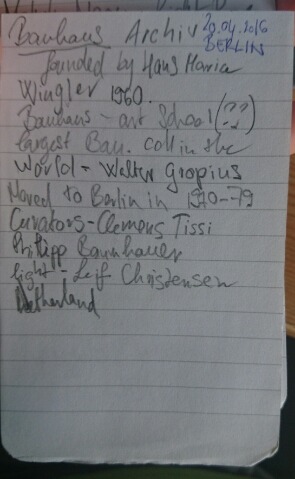 Bauhaus Archiv 20.04.2016
BERLIN
founded by Hans Maria
Wingler 1960.
Bauhaus - art School (??)
largest Bau. coll in the
World - Walter Gropius
Moved to Berlin in 1970-79
Curators - Clemens Tissi
Phillipp Baunhauer
light - Leif Christensen
Netherland